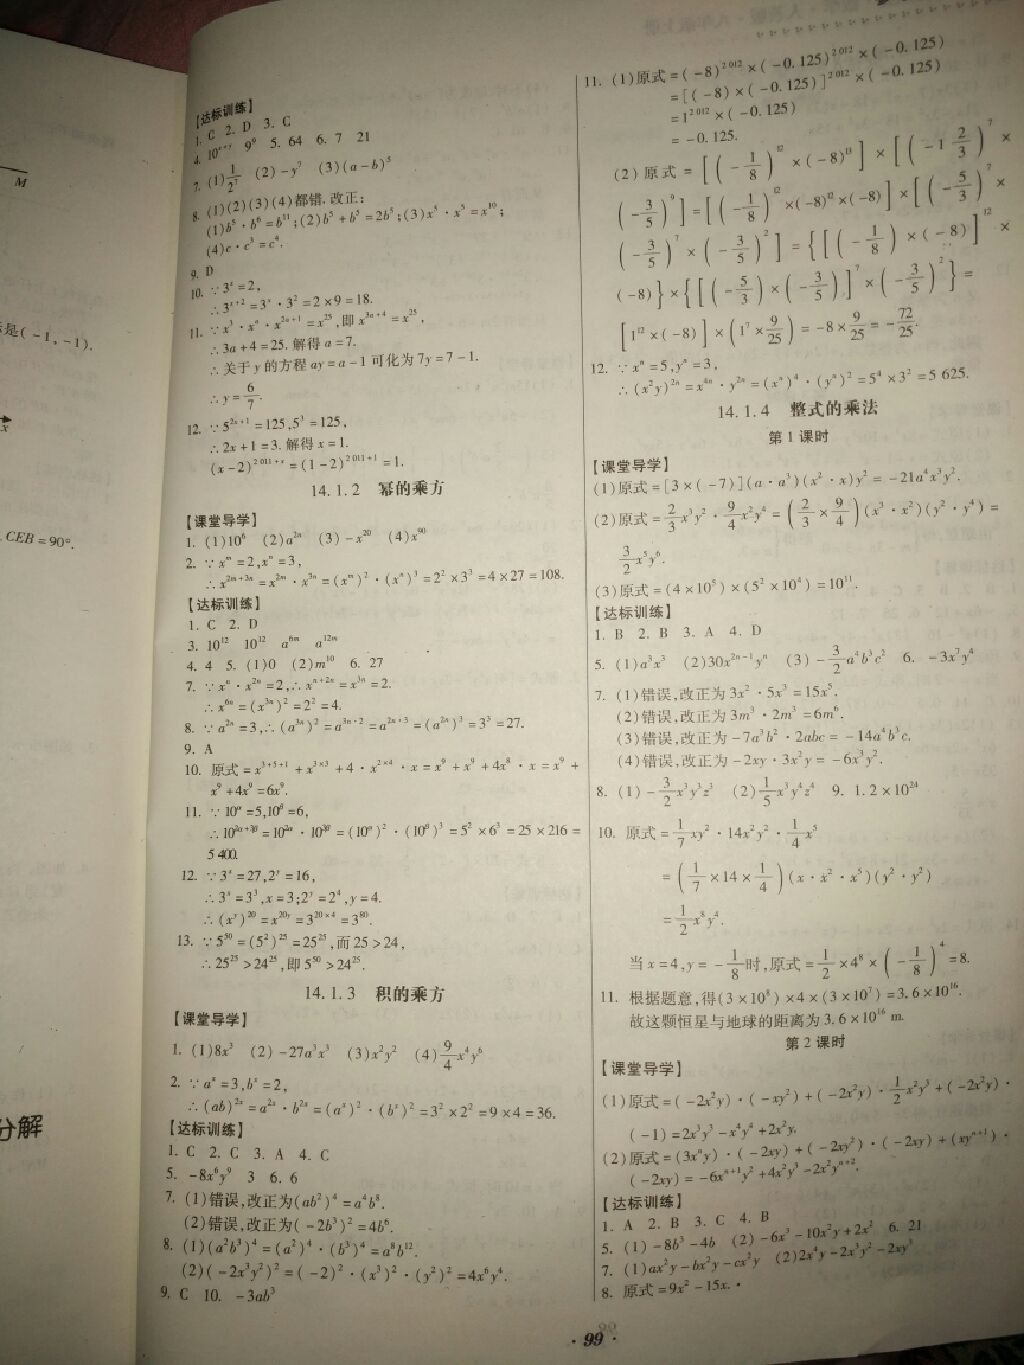 M
是(-1,-1).
x
CEB=90°.
分解
【达标训练】
1. C 2. D 3. C
4. 10ˣ⁺ʸ 9⁹ 5. 64 6. 7 21
7. (1)1/2⁷ (2)-y⁷ (3)(a-b)⁵
8. (1)(2)(3)(4)都错.改正:
(1)b⁵·b⁶=b¹¹;(2)b⁵+b⁵=2b⁵;(3)x⁵·x⁵=x¹⁰;
(4)c·c³=c⁴.
9. D
10. ∵3ˣ=2,
∴3ˣ⁺²=3ˣ·3²=2×9=18.
11. ∵x³·xᵃ·x²ᵃ⁺¹=x²⁵,即x³ᵃ⁺⁴=x²⁵,
∴3a+4=25.解得a=7.
∴关于y的方程ay=a-1可化为7y=7-1.
∴y=6/7.
12. ∵5²ˣ⁺¹=125,5³=125,
∴2x+1=3.解得x=1.
(x-2)²⁰¹¹⁺ˣ=(1-2)²⁰¹¹⁺¹=1.
14.1.2 幂的乘方
【课堂导学】
1. (1)10⁶ (2)a²ⁿ (3)-x²⁰ (4)x⁹⁰
2. ∵xᵐ=2,xⁿ=3,
∴x²ᵐ⁺³ⁿ=x²ᵐ·x³ⁿ=(xᵐ)²·(xⁿ)³=2²×3³=4×27=108.
【达标训练】
1. C 2. D
3. 10¹² 10¹² a⁶ᵐ a¹²ᵐ
4. 4 5. (1)0 (2)m¹⁰ 6. 27
7. ∵xⁿ·x²ⁿ=2,∴xⁿ⁺²ⁿ=x³ⁿ=2.
∴x⁶ⁿ=(x³ⁿ)²=2²=4.
8. ∵a²ⁿ=3,∴(a³ⁿ)²=a³ⁿ*²=a²ⁿ*³=(a²ⁿ)³=3³=27.
9. A
10. 原式=x³⁺⁵⁺¹+x³ˣ³+4·x²ˣ⁴·x=x⁹+x⁹+4x⁸·x=x⁹+
x⁹+4x⁹=6x⁹.
11. ∵10ᵅ=5,10ᵝ=6,
∴10²ᵅ⁺³ᵝ=10²ᵅ·10³ᵝ=(10ᵅ)²·(10ᵝ)³=5²×6³=25×216=
5 400.
12. ∵3ˣ=27,2ʸ=16,
∴3ˣ=3³,x=3;2ʸ=2⁴,y=4.
∴(xʸ)²⁰=x²⁰ʸ=3²⁰ˣ⁴=3⁸⁰.
13. ∵5⁵⁰=(5²)²⁵=25²⁵,而25>24,
∴25²⁵>24²⁵,即5⁵⁰>24²⁵.
14.1.3 积的乘方
【课堂导学】
1. (1)8x³ (2)-27a³x³ (3)x²y² (4)9/4x⁴y⁶
2. ∵aˣ=3,bˣ=2,
∴(ab)²ˣ=a²ˣ·b²ˣ=(aˣ)²·(bˣ)²=3²×2²=9×4=36.
【达标训练】
1. C 2. C 3. A 4. C
5. -8x⁶y⁹ 3 6. 6
7. (1)错误,改正为(ab²)⁴=a⁴b⁸.
(2)错误,改正为(-2b³)²=4b⁶.
8. (1)(a²b³)⁴=(a²)⁴·(b³)⁴=a⁸b¹².
(2)(-2x³y²)²=(-2)²·(x³)²·(y²)²=4x⁶y⁴.
9. C 10. -3ab³
11. (1)原式=(-8)²⁰¹²×(-0.125)²⁰¹²×(-0.125)
=[(-8)×(-0.125)]²⁰¹²×(-0.125)
=1²⁰¹²×(-0.125)
=-0.125.
(2)原式=[(-1/8)¹²×(-8)¹³]×[(-1 2/3)⁷×
(-3/5)⁹]=[(-1/8)¹²×(-8)¹²×(-8)]×[(-5/3)⁷×
(-3/5)⁷×(-3/5)²]={[(-1/8)×(-8)]¹²×
(-8)}×{[(-5/3)×(-3/5)]⁷×(-3/5)²}=
[1¹²×(-8)]×(1⁷×9/25)=-8×9/25=-72/25.
12. ∵xⁿ=5,yⁿ=3,
∴(x²y)²ⁿ=x⁴ⁿ·y²ⁿ=(xⁿ)⁴·(yⁿ)²=5⁴×3²=5 625.
14.1.4 整式的乘法
第1课时
【课堂导学】
(1)原式=[3×(-7)](a·a³)(x²·x)y²=-21a⁴x³y².
(2)原式=2/3x³y²·9/4x²y⁴=(2/3×9/4)(x³·x²)(y²·y⁴)=
3/2x⁵y⁶.
(3)原式=(4×10⁵)×(5²×10⁴)=10¹¹.
【达标训练】
1. B 2. B 3. A 4. D
5. (1)a³x³ (2)30x²ⁿ⁻¹yⁿ (3)-3/2a⁴b³c² 6. -3x⁷y⁴
7. (1)错误,改正为3x²·5x³=15x⁵.
(2)错误,改正为3m³·2m³=6m⁶.
(3)错误,改正为-7a³b²·2abc=-14a⁴b³c.
(4)错误,改正为-2xy·3x²y=-6x³y².
8. (1)-3/2x³y³z³ (2)1/5x³y⁴z⁴ 9. 1.2×10²⁴
10. 原式=1/7xy²·14x²y²·1/4x⁵
=(1/7×14×1/4)(x·x²·x⁵)(y²·y²)
=1/2x⁸y⁴.
当x=4,y=-1/8时,原式=1/2×4⁸×(-1/8)⁴=8.
11. 根据题意,得(3×10⁸)×4×(3×10⁷)=3.6×10¹⁶.
故这颗恒星与地球的距离为3.6×10¹⁶ m.
第2课时
【课堂导学】
(1)原式=(-2x²y)·(-xy²)+(-2x²y)·1/2x²y³+(-2x²y)·
(-1)=2x³y³-x⁴y⁴+2x²y.
(2)原式=(3xⁿy)·(-2xy)+(-2xy²)·(-2xy)+(xyⁿ⁺¹)·
(-2xy)=-6xⁿ⁺¹y²+4x²y³-2x²yⁿ⁺².
【达标训练】
1. A 2. B 3. C 4. B
5. (1)-8b³-4b (2)-6x³-10x²y+2x² 6. 21
7. (1)ax²y-bx²y-cx²y (2)2x⁴y-2x³y²-2xy³
8. 原式=9x²-15x.
·99·